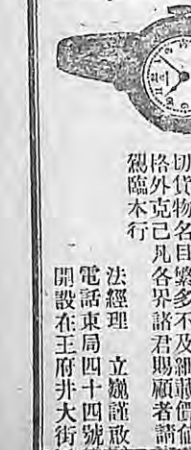 切貨物名目繁多不及細載價值
格外克己凡各界諸君賜顧者請
駕臨本行
法經理 立巍謹啟
電話東局四十四號
開設在王府井大街